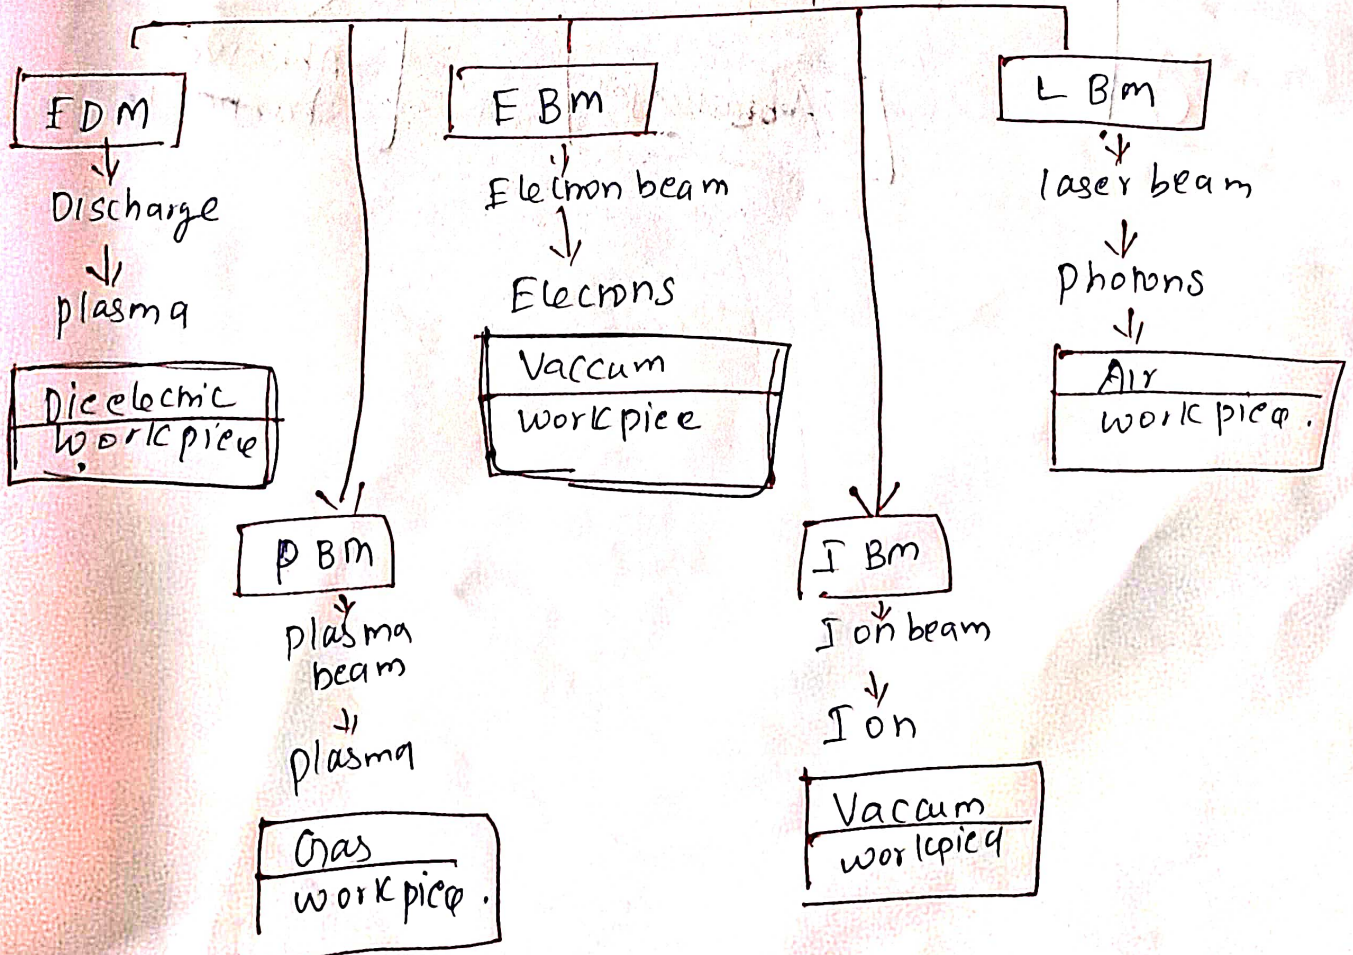 EDM
Discharge
plasma
Dielectric
workpiece
EBm
Electron beam
Elecrons
Vaccum
workpiece
LBm
laser beam
photons
Air
workpiece.
PBM
plasma
beam
plasma
Gas
workpiece.
IBm
Ion beam
Ion
Vaccum
workpiece